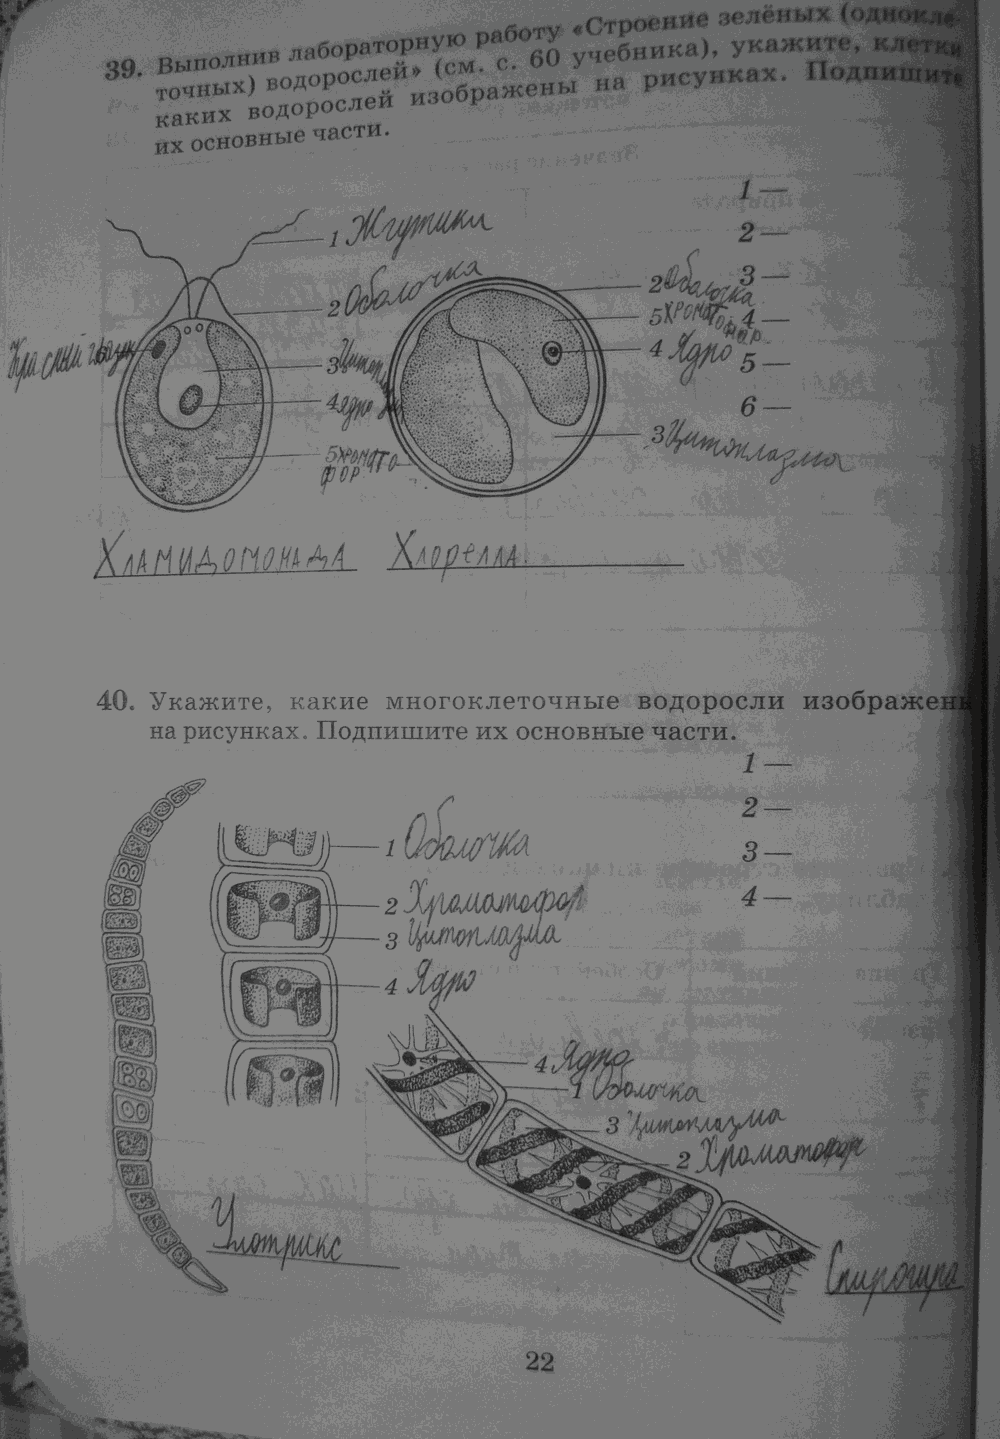 39. Выполнив лабораторную работу «Строение зелёных (однокле-
точных) водорослей» (см. с. 60 учебника), укажите, клетки
каких водорослей изображены на рисунках. Подпишите
их основные части.
1 —
2 —
3 —
4 —
5 —
6 —
1 Жгутики
2 Оболочка
3
4 ядро
5 хромато
фор
2 Оболочка
5 хромато
фор
4 Ядро
3 Цитоплазма
Хламидомонада
Хлорелла
40. Укажите, какие многоклеточные водоросли изображены
на рисунках. Подпишите их основные части.
1 —
2 —
3 —
4 —
1 Оболочка
2 Хроматофор
3 Цитоплазма
4 Ядро
4 Ядро
1 Оболочка
3 Цитоплазма
2 Хроматофор
Улотрикс
Спирогира
22